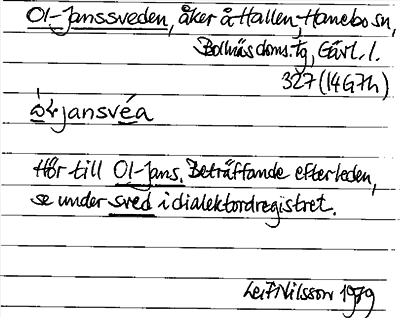 Ol-Janssveden, åker å Hallen, Hanebo sn,
Bollnäs doms.tg, Gävl. l.
327 (14G7h)
jansvéa
Hör till Ol-Jans. Beträffande efterleden,
se under sved i dialektordregistret.
Leif Nilsson 1979